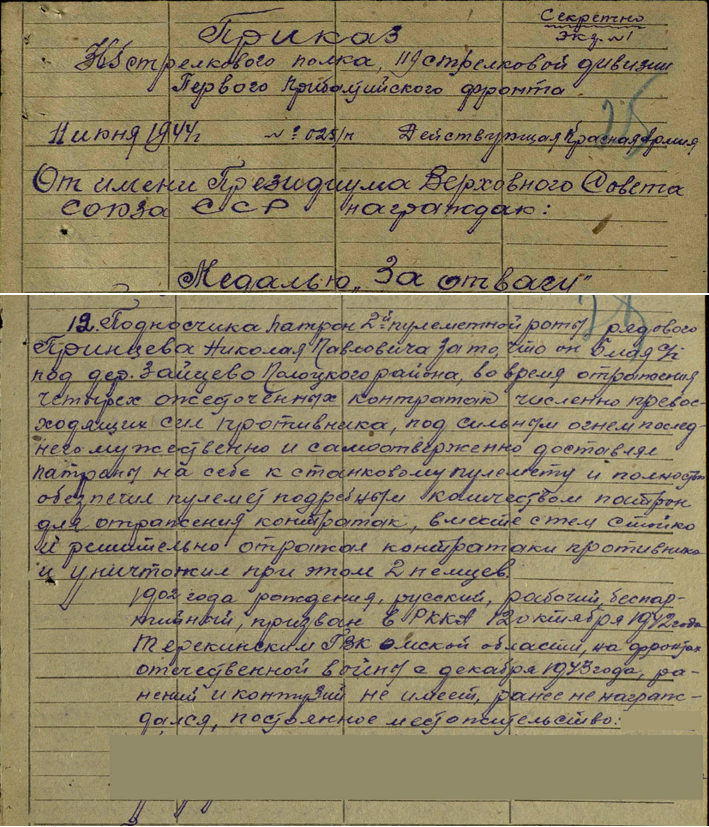 Секретно
Экз. №1
Приказ
стрелкового полка, 119 стрелковой дивизии
Первого Прибалтийского фронта
11 июня 1944 г № 023/н Действующая Красная Армия
28
От имени Президиума Верховного Совета
Союза ССР награждаю:
Медалью „За отвагу"
28
12. Подносчика патрон 2й пулеметной роты рядового
Принцева Николая Павловича за то, что он 5 мая с/г
под дер. Зайцево Полоцкого района, во время отражения
четырех ожесточенных контратак численно превос-
ходящих сил противника, под сильным огнем послед-
него мужественно и самоотверженно доставлял
патроны на себе к станковому пулемету и полностью
обеспечил пулемет количеством патрон
для отражения контратак, вместе с тем стойко
и решительно отражал контратаки противника
и уничтожил при этом 2 немцев.
1902 года рождения, русский, рабочий, беспар-
тийный, призван в РККА 12 октября 1942 года
РВК Омской области, на фронтах
отечественной войны с декабря 1943 года, ра-
нений и контузий не имеет, ранее не награж-
дался, постоянное местожительство: